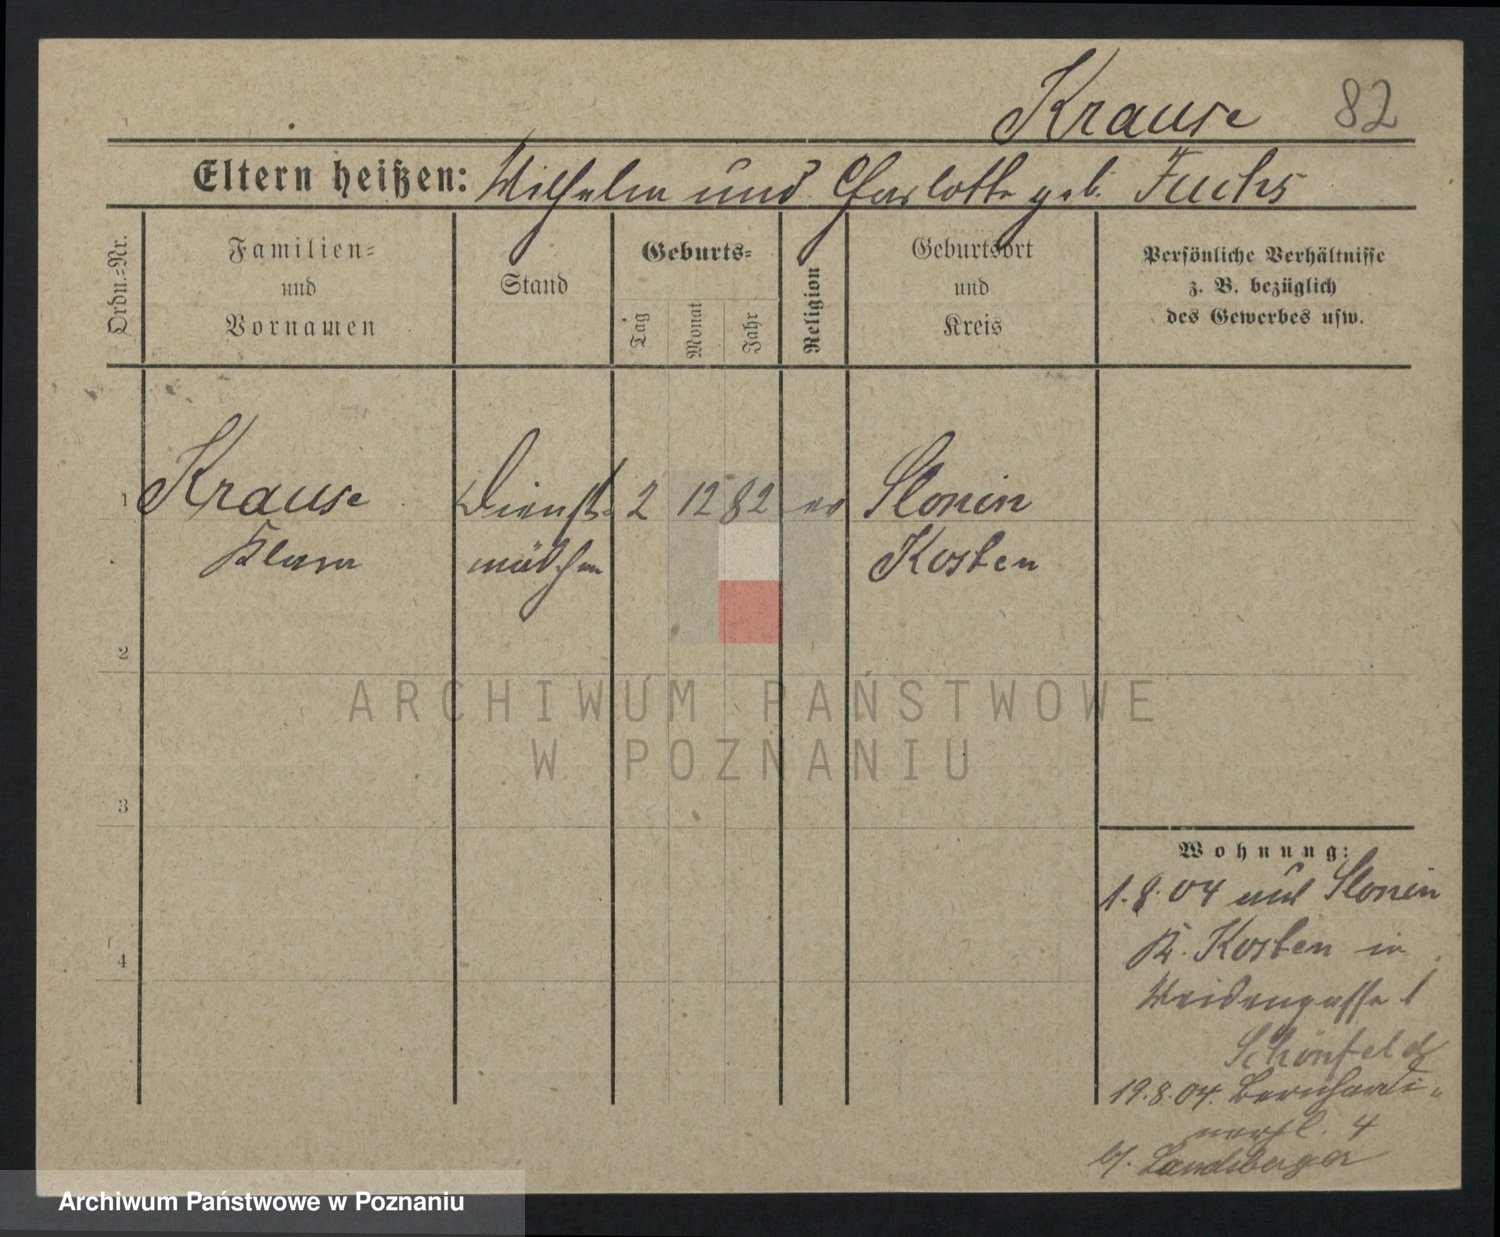 Krause 82
Eltern heißen: Wilhelm und Charlotte geb. Fuchs
Ordn.-Nr.
Familien-
und
Vornamen
Stand
Geburts-
Tag
Monat
Jahr
Religion
Geburtsort
und
Kreis
Persönliche Verhältnisse
z. B. bezüglich
des Gewerbes usw.
1 Krause Dienst- 2 12 82 ev Slonin
Klara mädchen Kosten
2
3
4
ARCHIWUM PAŃSTWOWE
W POZNANIU
Wohnung:
1.8.04 aus Slonin
Kr. Kosten in
Weidengasse 1
Schönfeld
19.8.04. Bernhardi-
4
b/. Landsberger
Archiwum Państwowe w Poznaniu